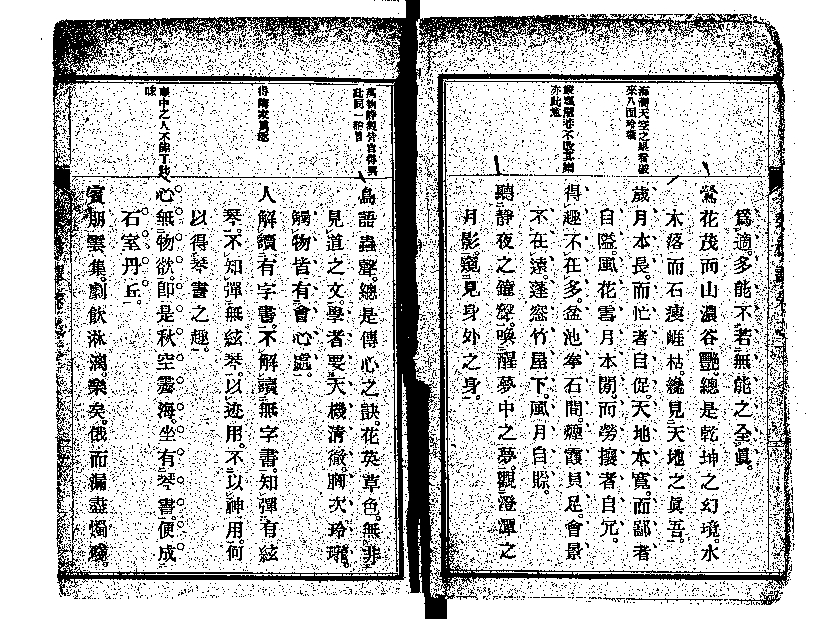 爲適多能不若無能之全眞。
鶯花茂而山濃谷艷。總是乾坤之幻境。水
木落而石瘦崖枯。纔見天地之眞吾。
歲月本長。而忙者自促。天地本寬。而鄙者
自隘。風花雪月本閒。而勞攘者自冗。
得趣不在多。盆池拳石間。煙霞具足。會景
不在遠。蓬窓竹屋下。風月自賒。
聽靜夜之鐘聲。喚醒夢中之夢。觀澄潭之
月影。窺見身外之身。
鳥語蟲聲。總是傳心之訣。花英草色。無非
見道之文。學者要天機清徹。胸次玲瓏。
觸物皆有會心處。
人解讀有字書。不解讀無字書。知彈有絃
琴。不知彈無絃琴。以迹用。不以神用。何
以得琴書之趣。
心無物欲。卽是秋空霽海。坐有琴書。便成
石室丹丘。
賓朋雲集。劇飲淋漓。樂矣。俄而漏盡燭殘。